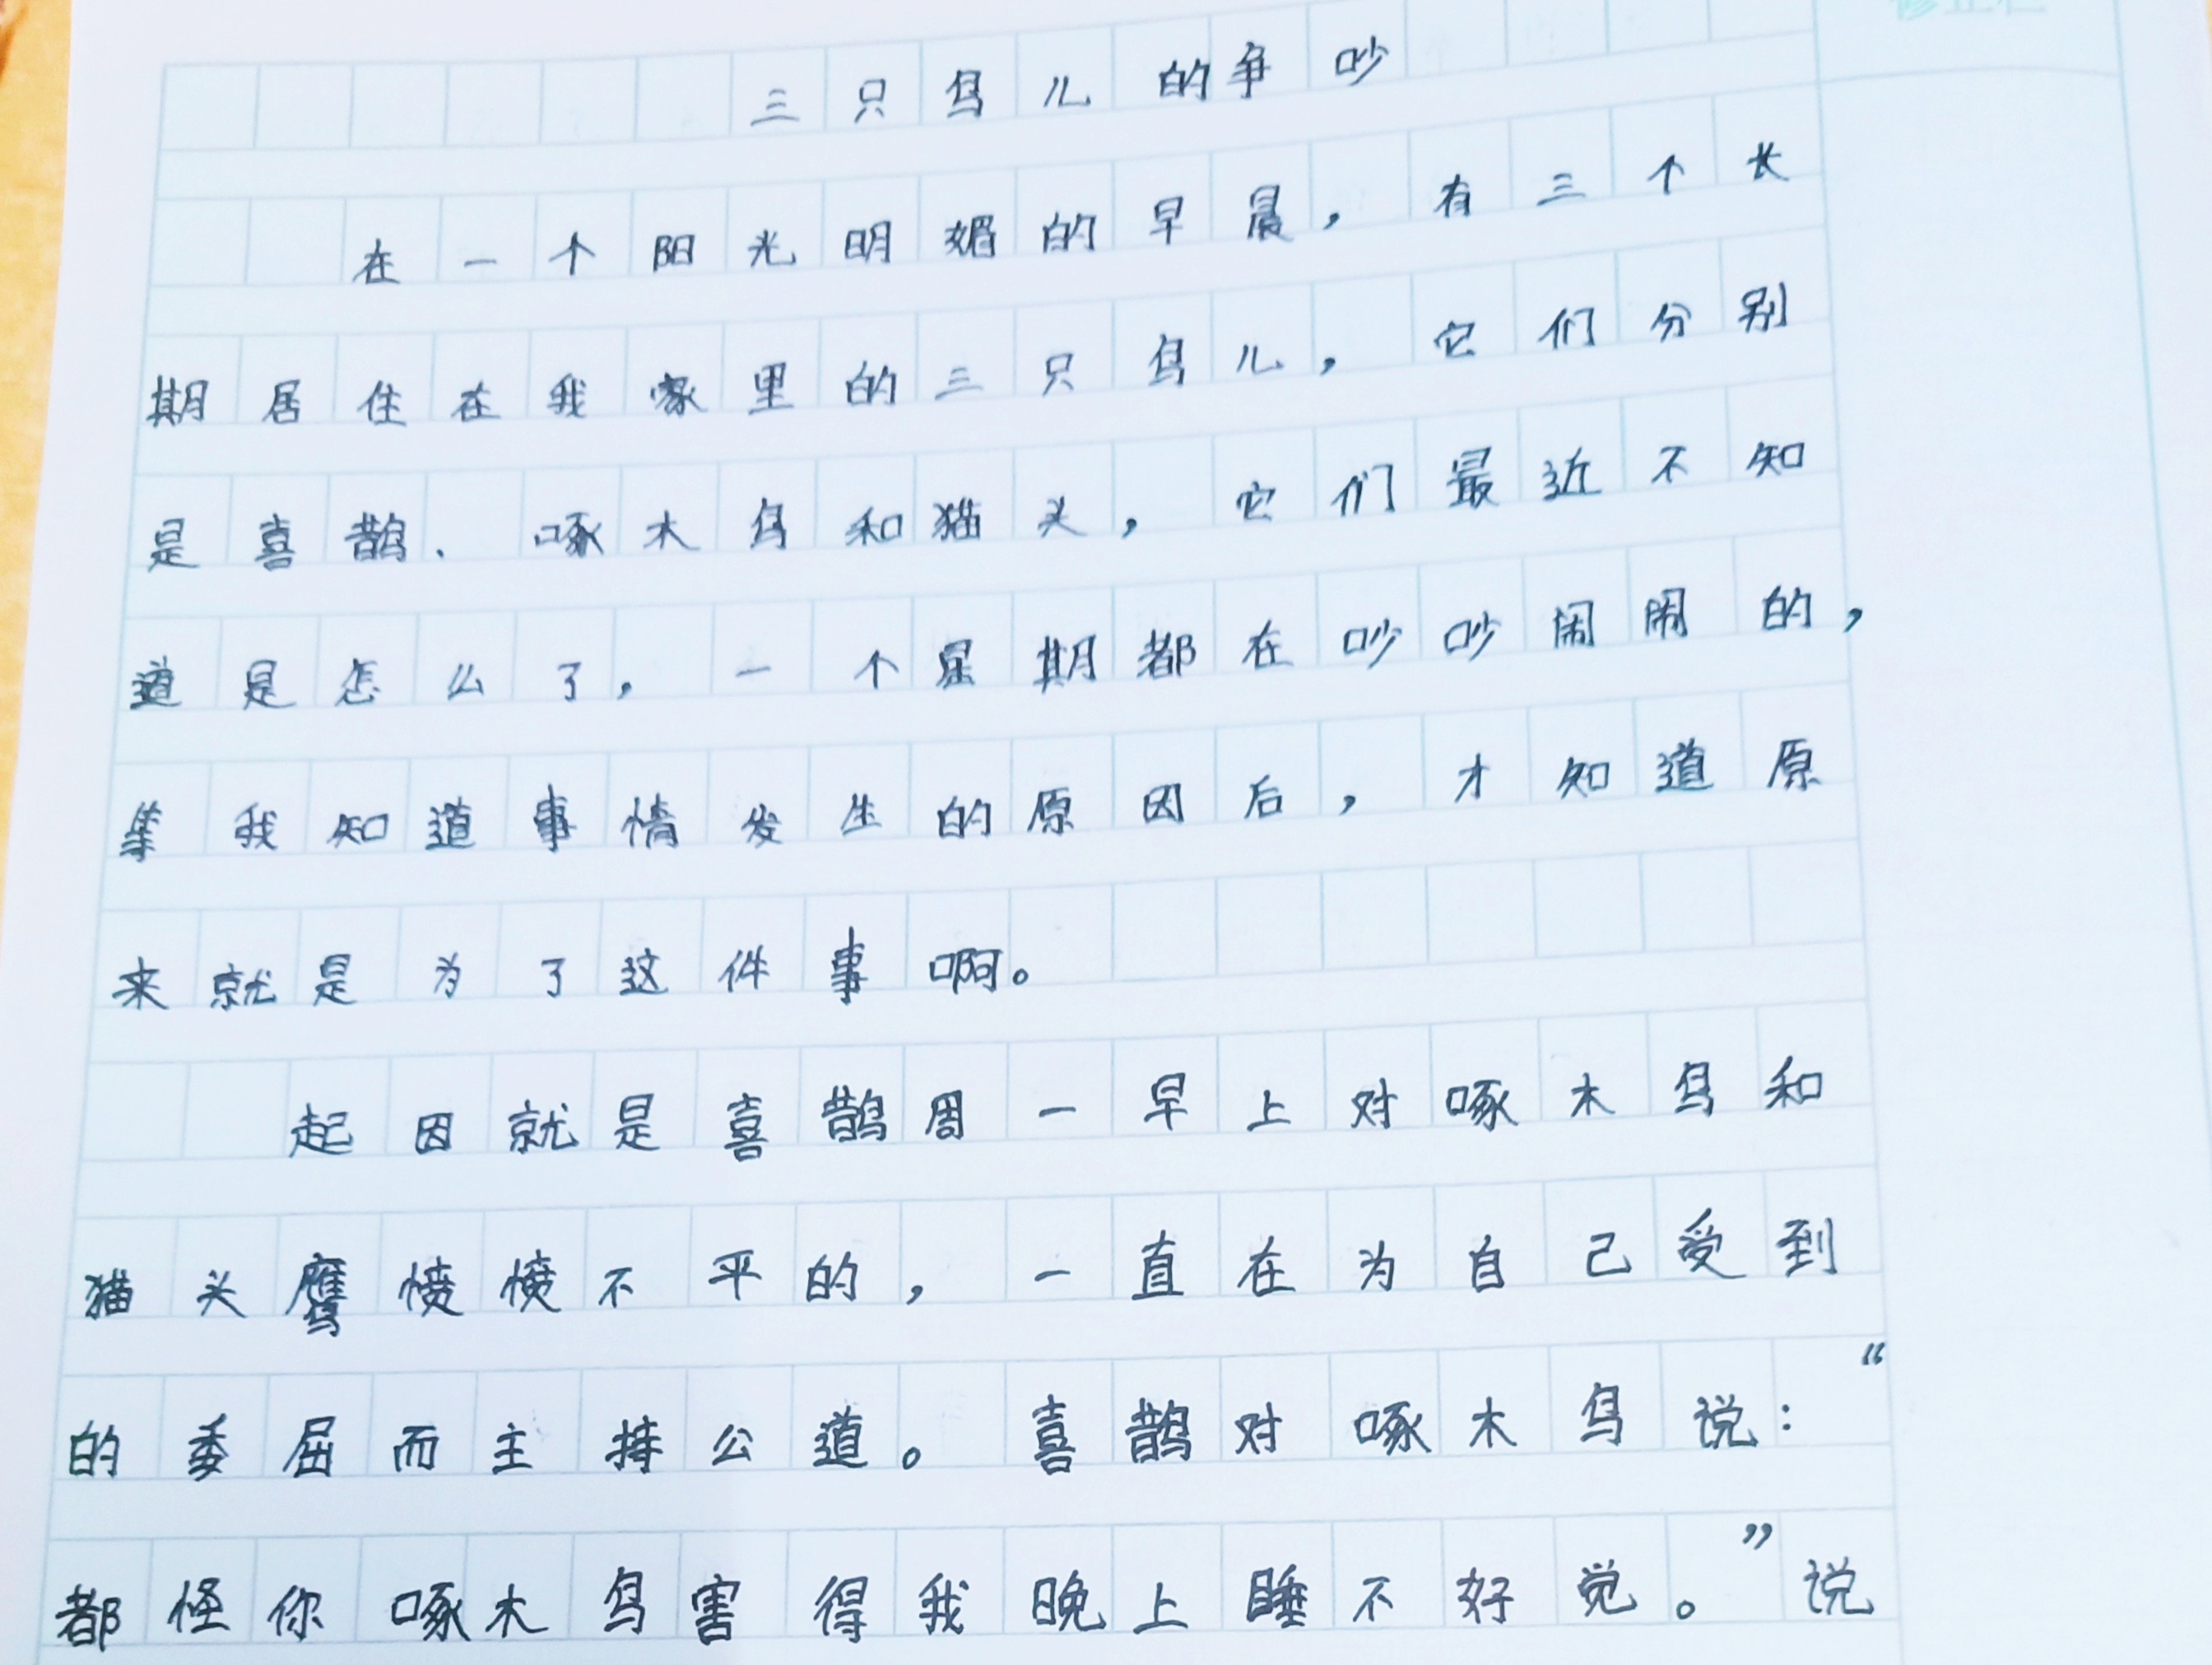 三只鸟儿的争吵
在一个阳光明媚的早晨，有三个长
期居住在我家里的三只鸟儿，它们分别
是喜鹊、啄木鸟和猫头，它们最近不知
道是怎么了，一个星期都在吵吵闹闹的，
等我知道事情发生的原因后，才知道原
来就是为了这件事啊。
起因就是喜鹊周一早上对啄木鸟和
猫头鹰愤愤不平的，一直在为自己受到
的委屈而主持公道。喜鹊对啄木鸟说：“
都怪你啄木鸟害得我晚上睡不好觉。”说